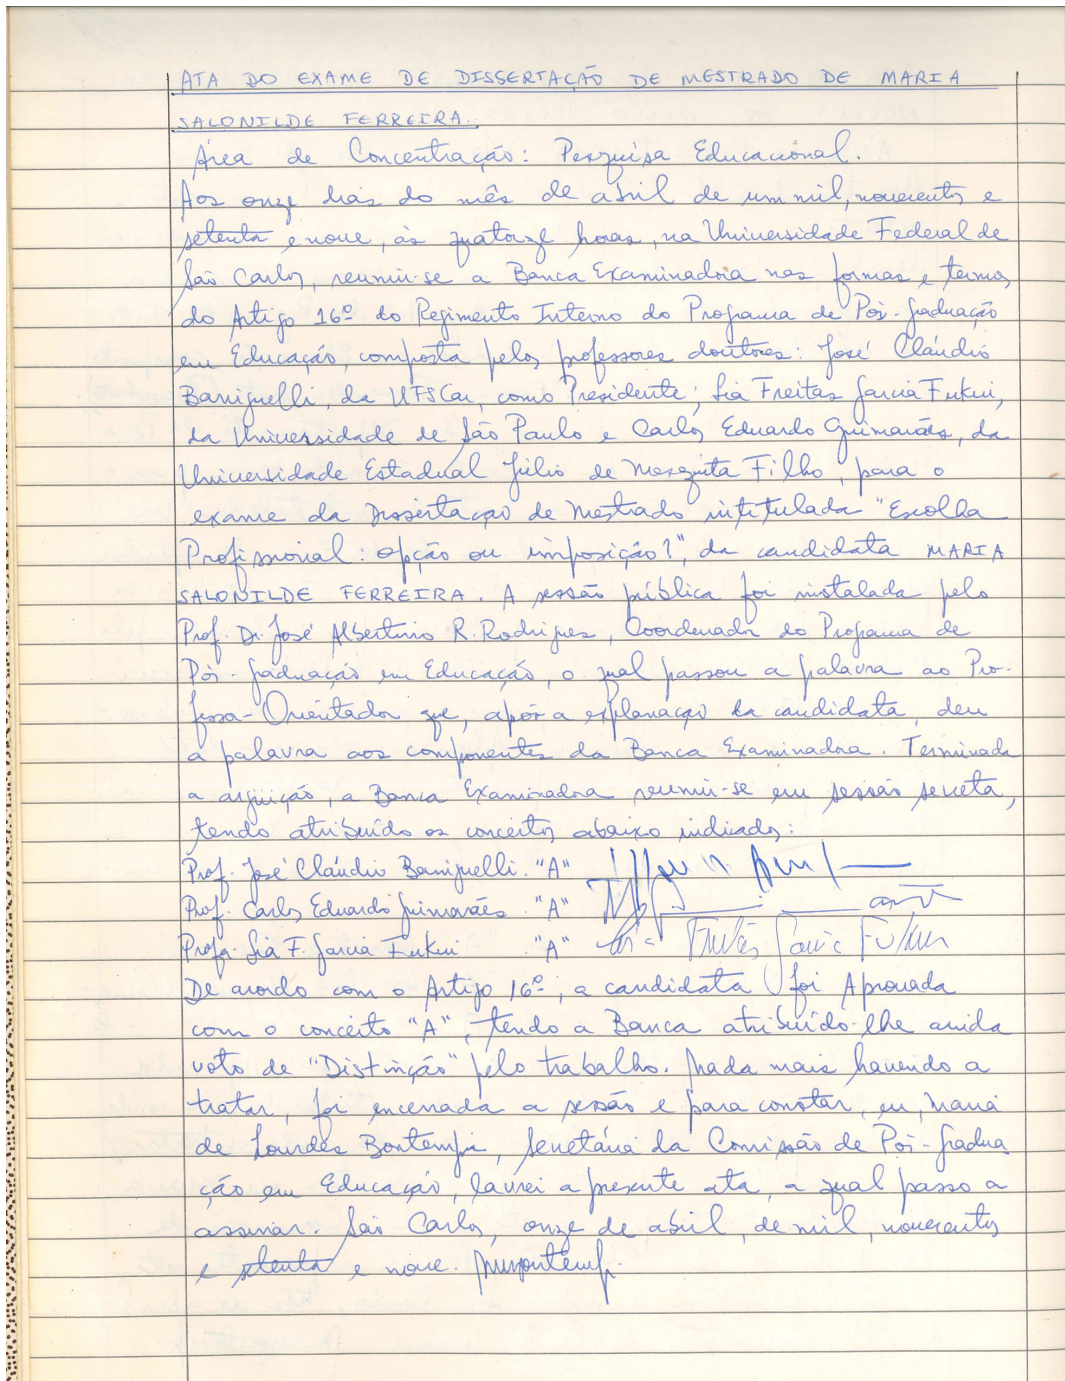 ATA DO EXAME DE DISSERTAÇÃO DE MESTRADO DE MARIA
SALONILDE FERREIRA.
Área de Concentração: Pesquisa Educacional.
Aos onze dias do mês de abril de um mil, novecentos e
setenta e nove, às quatorze horas, na Universidade Federal de
São Carlos, reuniu-se a Banca Examinadora nas formas e termos
do Artigo 16º do Regimento Interno do Programa de Pós-Graduação
em Educação, composta pelos professores doutores: José Cláudio
Barriguelli, da UFSCar, como Presidente; Lia Freitas Garcia Fukui,
da Universidade de São Paulo e Carlos Eduardo Guimarães, da
Universidade Estadual Júlio de Mesquita Filho, para o
exame da Dissertação de Mestrado intitulada "Escolha
Profissional: opção ou imposição?", da candidata MARIA
SALONILDE FERREIRA. A sessão pública foi instalada pelo
Prof. Dr. José Albertino R. Rodrigues, Coordenador do Programa de
Pós-Graduação em Educação, o qual passou a palavra ao Pro-
fessor-Orientador que, após a explanação da candidata, deu
a palavra aos componentes da Banca Examinadora. Terminada
a arguição, a Banca Examinadora reuniu-se em sessão secreta,
tendo atribuído os conceitos abaixo indicados:
Prof. José Cláudio Barriguelli. "A"
Prof. Carlos Eduardo Guimarães. "A"
Profa. Lia F. Garcia Fukui "A" Lia Freitas Garcia Fukui
De acordo com o Artigo 16º, a candidata foi Aprovada
com o conceito "A", tendo a Banca atribuído-lhe ainda
voto de "Distinção" pelo trabalho. Nada mais havendo a
tratar, foi encerrada a sessão e para constar, eu, Maria
de Lourdes Bontempi, Secretária da Comissão de Pós-Gradua
ção em Educação, lavrei a presente ata, a qual passo a
assinar. São Carlos, onze de abril, de mil, novecentos
e setenta e nove.